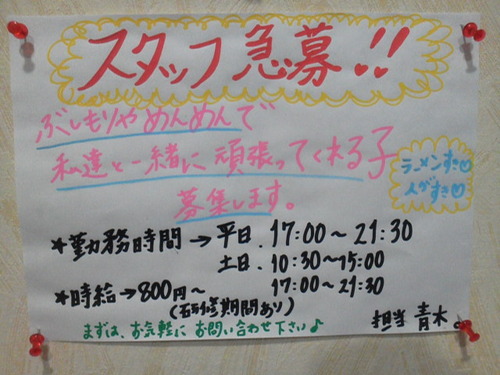 スタッフ急募!!
ぶしもりやめんめんで
私達と一緒に頑張ってくれる子
募集します。
ラーメンすき♡
人がすき♡
*勤務時間→平日.17:00〜21:30
土日.10:30〜15:00
17:00〜21:30
*時給→800円〜
(研修期間あり)
まずは、お気軽にお問い合わせ下さい♪
担当 青木。